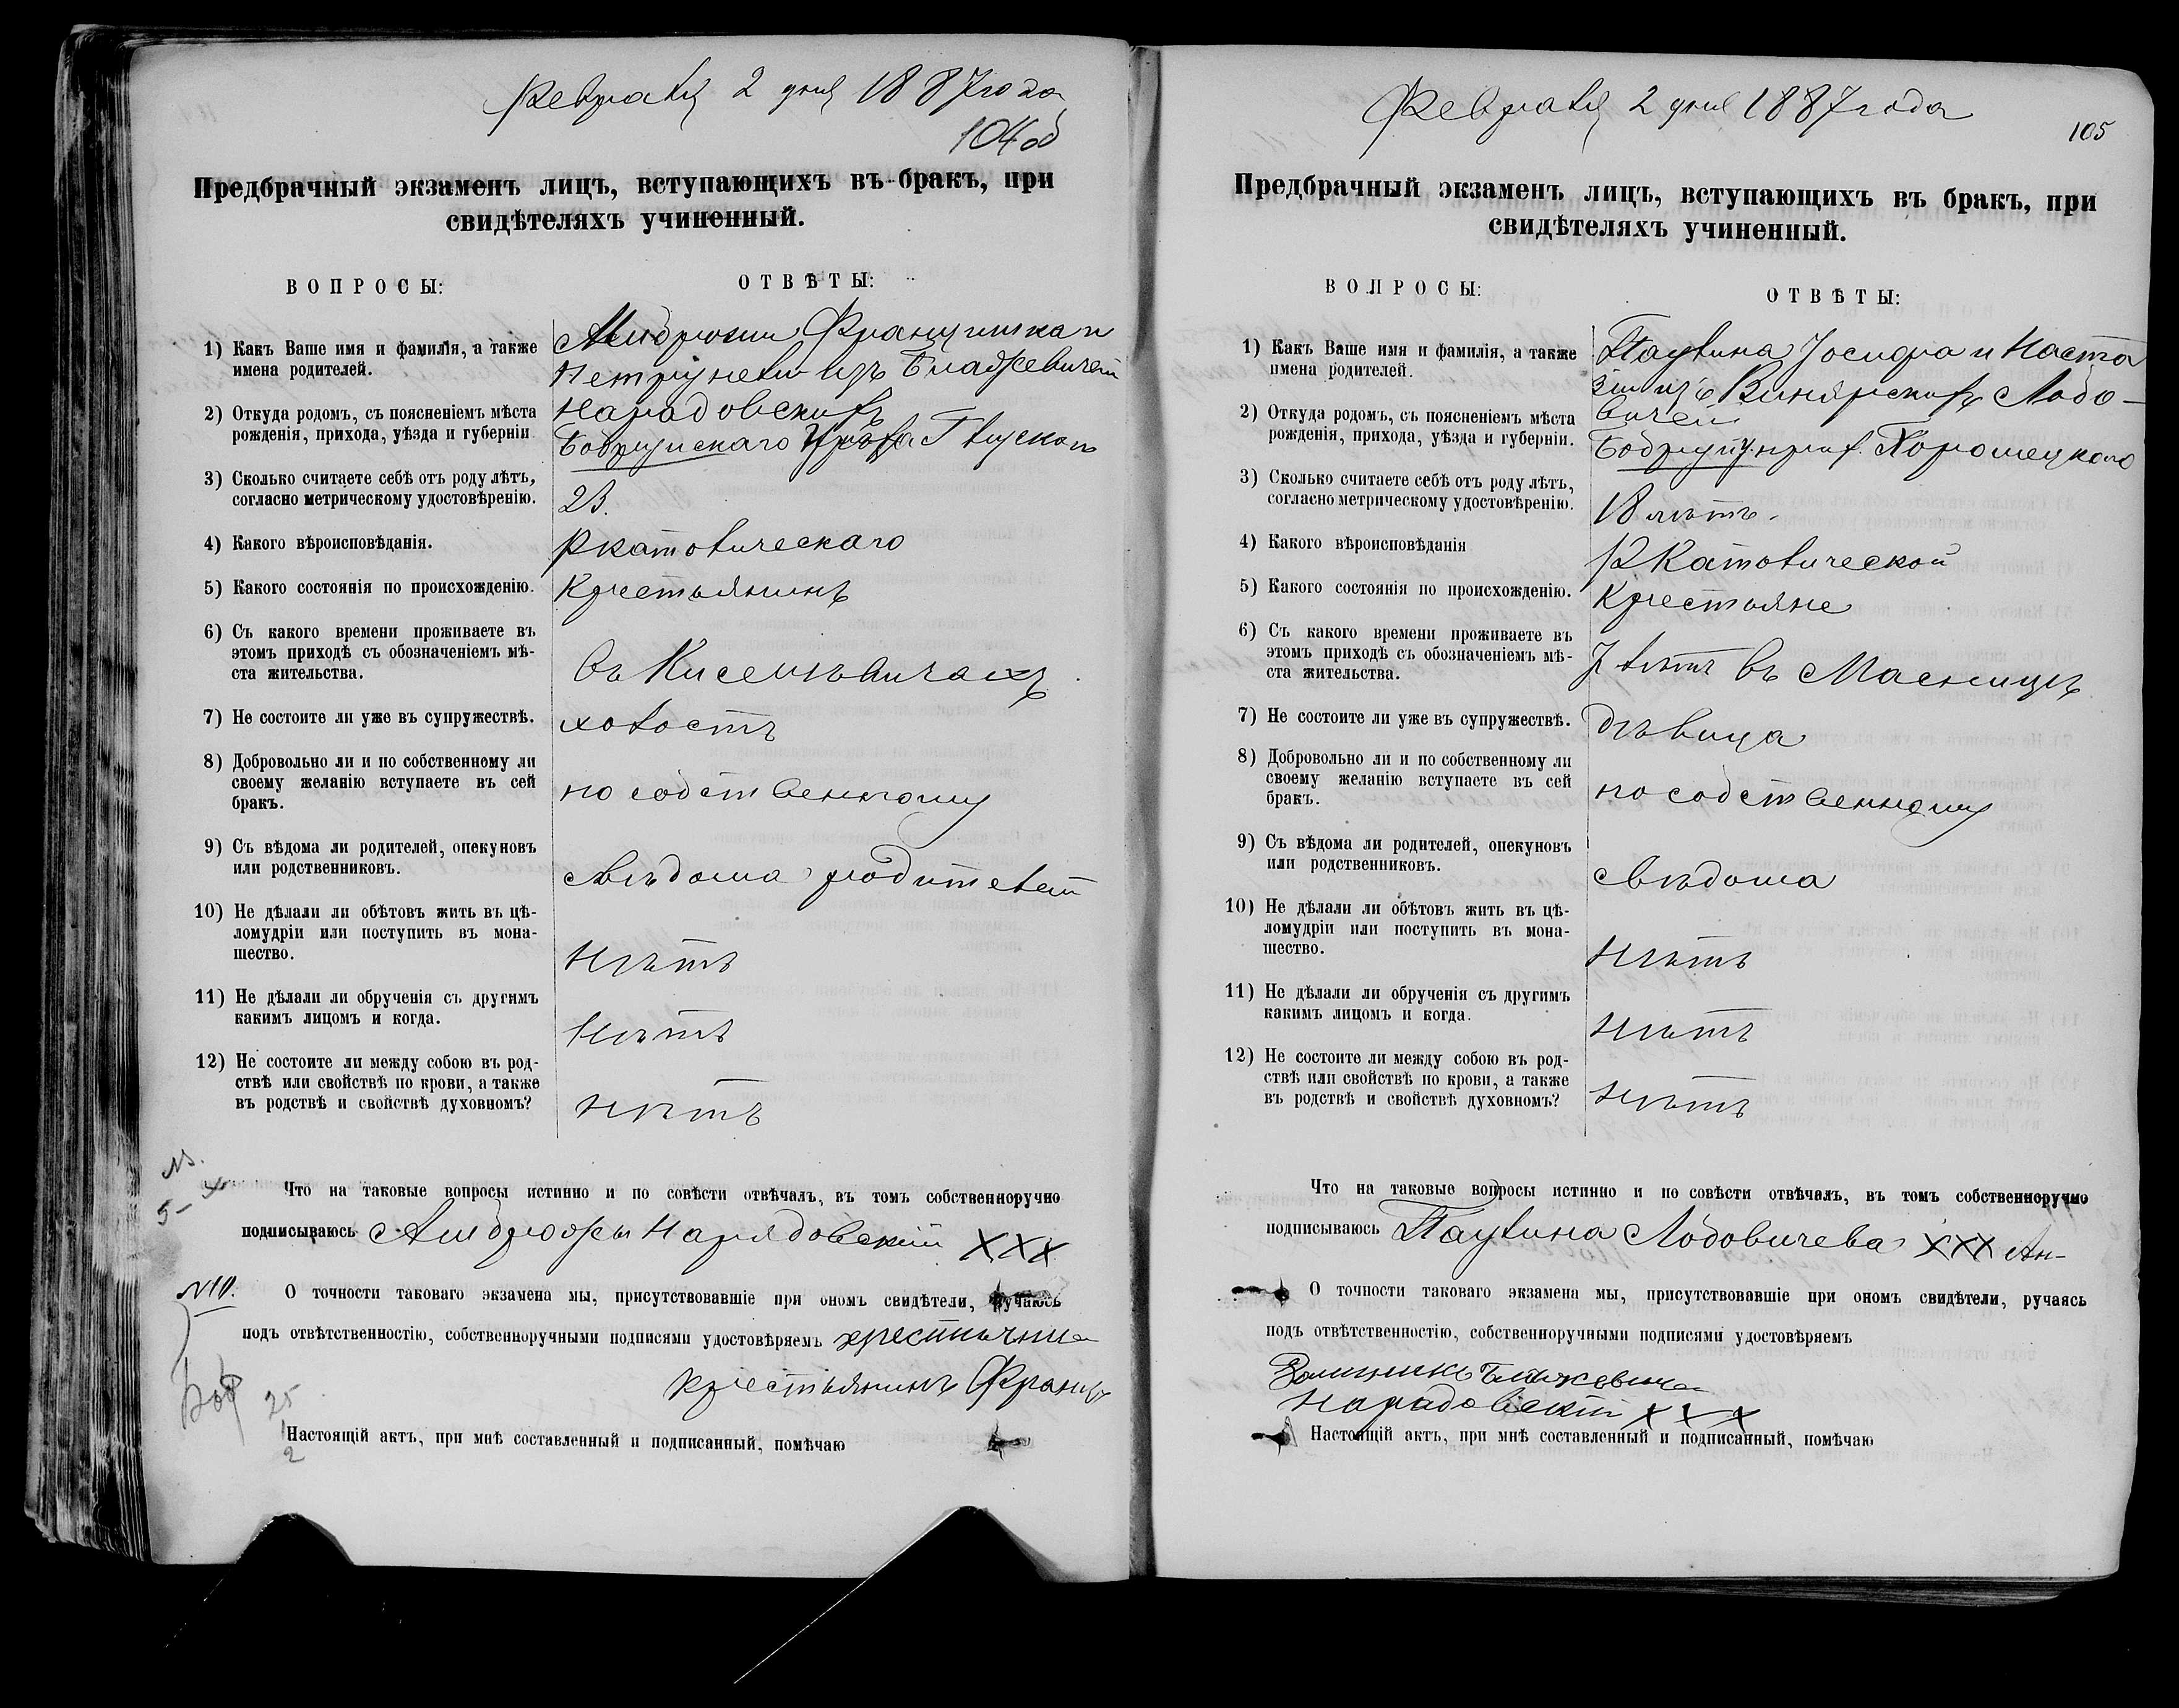 Февраля 2 дня 1887 года
104 об
Предбрачный экзаменъ лицъ, вступающихъ въ бракъ, при
свидѣтеляхъ учиненный.
ВОПРОСЫ:
ОТВѢТЫ:
1) Какъ Ваше имя и фамилія, а также
имена родителей.
Францишка и
изъ Блажевичей
2) Откуда родомъ, съ поясненіемъ мѣста
рожденія, прихода, уѣзда и губерніи
Нарадовскихъ
Бобруйскаго Глускаго
3) Сколько считаете себѣ отъ роду лѣтъ,
согласно метрическому удостовѣренію.
23.
4) Какого вѣроисповѣданія.
Ркатолическаго
5) Какого состоянія по происхожденію.
Крестьянинъ
6) Съ какого времени проживаете въ
этомъ приходѣ съ обозначеніемъ мѣ-
ста жительства.
въ Киселевичахъ
7) Не состоите ли уже въ супружествѣ.
холостъ
8) Добровольно ли и по собственному ли
своему желанію вступаете въ сей
бракъ.
по собственному
9) Съ вѣдома ли родителей, опекуновъ
или родственниковъ.
свѣдома родителей
10) Не дѣлали ли обѣтовъ жить въ цѣ-
ломудріи или поступить въ мона-
шество.
нѣтъ
11) Не дѣлали ли обрученія съ другимъ
какимъ лицомъ и когда.
нѣтъ
12) Не состоите ли между собою въ род-
ствѣ или свойствѣ по крови, а также
въ родствѣ и свойствѣ духовномъ?
нѣтъ
Что на таковые вопросы истинно и по совѣсти отвѣчалъ, въ томъ собственноручно
подписываюсь Нарадовскій ХХХ
О точности таковаго экзамена мы, присутствовавшіе при ономъ свидѣтели, ручаюсь
подъ отвѣтственностію, собственноручными подписями удостовѣряемъ
крестьянинъ Францъ
25
2
Настоящій актъ, при мнѣ составленный и подписанный, помѣчаю
Февраля 2 дня 1887 года
105
Предбрачный экзаменъ лицъ, вступающихъ въ бракъ, при
свидѣтеляхъ учиненный.
ВОПРОСЫ:
ОТВѢТЫ:
1) Какъ Ваше имя и фамилія, а также
имена родителей.
Паулина Іосифа и Наста
зіи изъ Винярскихъ Лобо-
вичей
2) Откуда родомъ, съ поясненіемъ мѣста
рожденія, прихода, уѣзда и губерніи.
Бобруй. у. прих. Хорошецкаго
3) Сколько считаете себѣ отъ роду лѣтъ,
согласно метрическому удостовѣренію.
18 лѣтъ.
4) Какого вѣроисповѣданія
РКатолической
5) Какого состоянія по происхожденію.
Крестьяне
6) Съ какого времени проживаете въ
этомъ приходѣ съ обозначеніемъ мѣ-
ста жительства.
лѣтъ въ
7) Не состоите ли уже въ супружествѣ.
дѣвица
8) Добровольно ли и по собственному ли
своему желанію вступаете въ сей
бракъ.
по собственному
9) Съ вѣдома ли родителей, опекуновъ
или родственниковъ.
свѣдома
10) Не дѣлали ли обѣтовъ жить въ цѣ-
ломудріи или поступить въ мона-
шество.
нѣтъ
11) Не дѣлали ли обрученія съ другимъ
какимъ лицомъ и когда.
нѣтъ
12) Не состоите ли между собою въ род-
ствѣ или свойствѣ по крови, а также
въ родствѣ и свойствѣ духовномъ?
нѣтъ
Что на таковые вопросы истинно и по совѣсти отвѣчалъ, въ томъ собственноручно
подписываюсь Паулина Лобовичева ХХХ Ан-
О точности таковаго экзамена мы, присутствовавшіе при ономъ свидѣтели, ручаясь
подъ отвѣтственностію, собственноручными подписями удостовѣряемъ
Нарадовскій х х х
Настоящій актъ, при мнѣ составленный и подписанный, помѣчаю